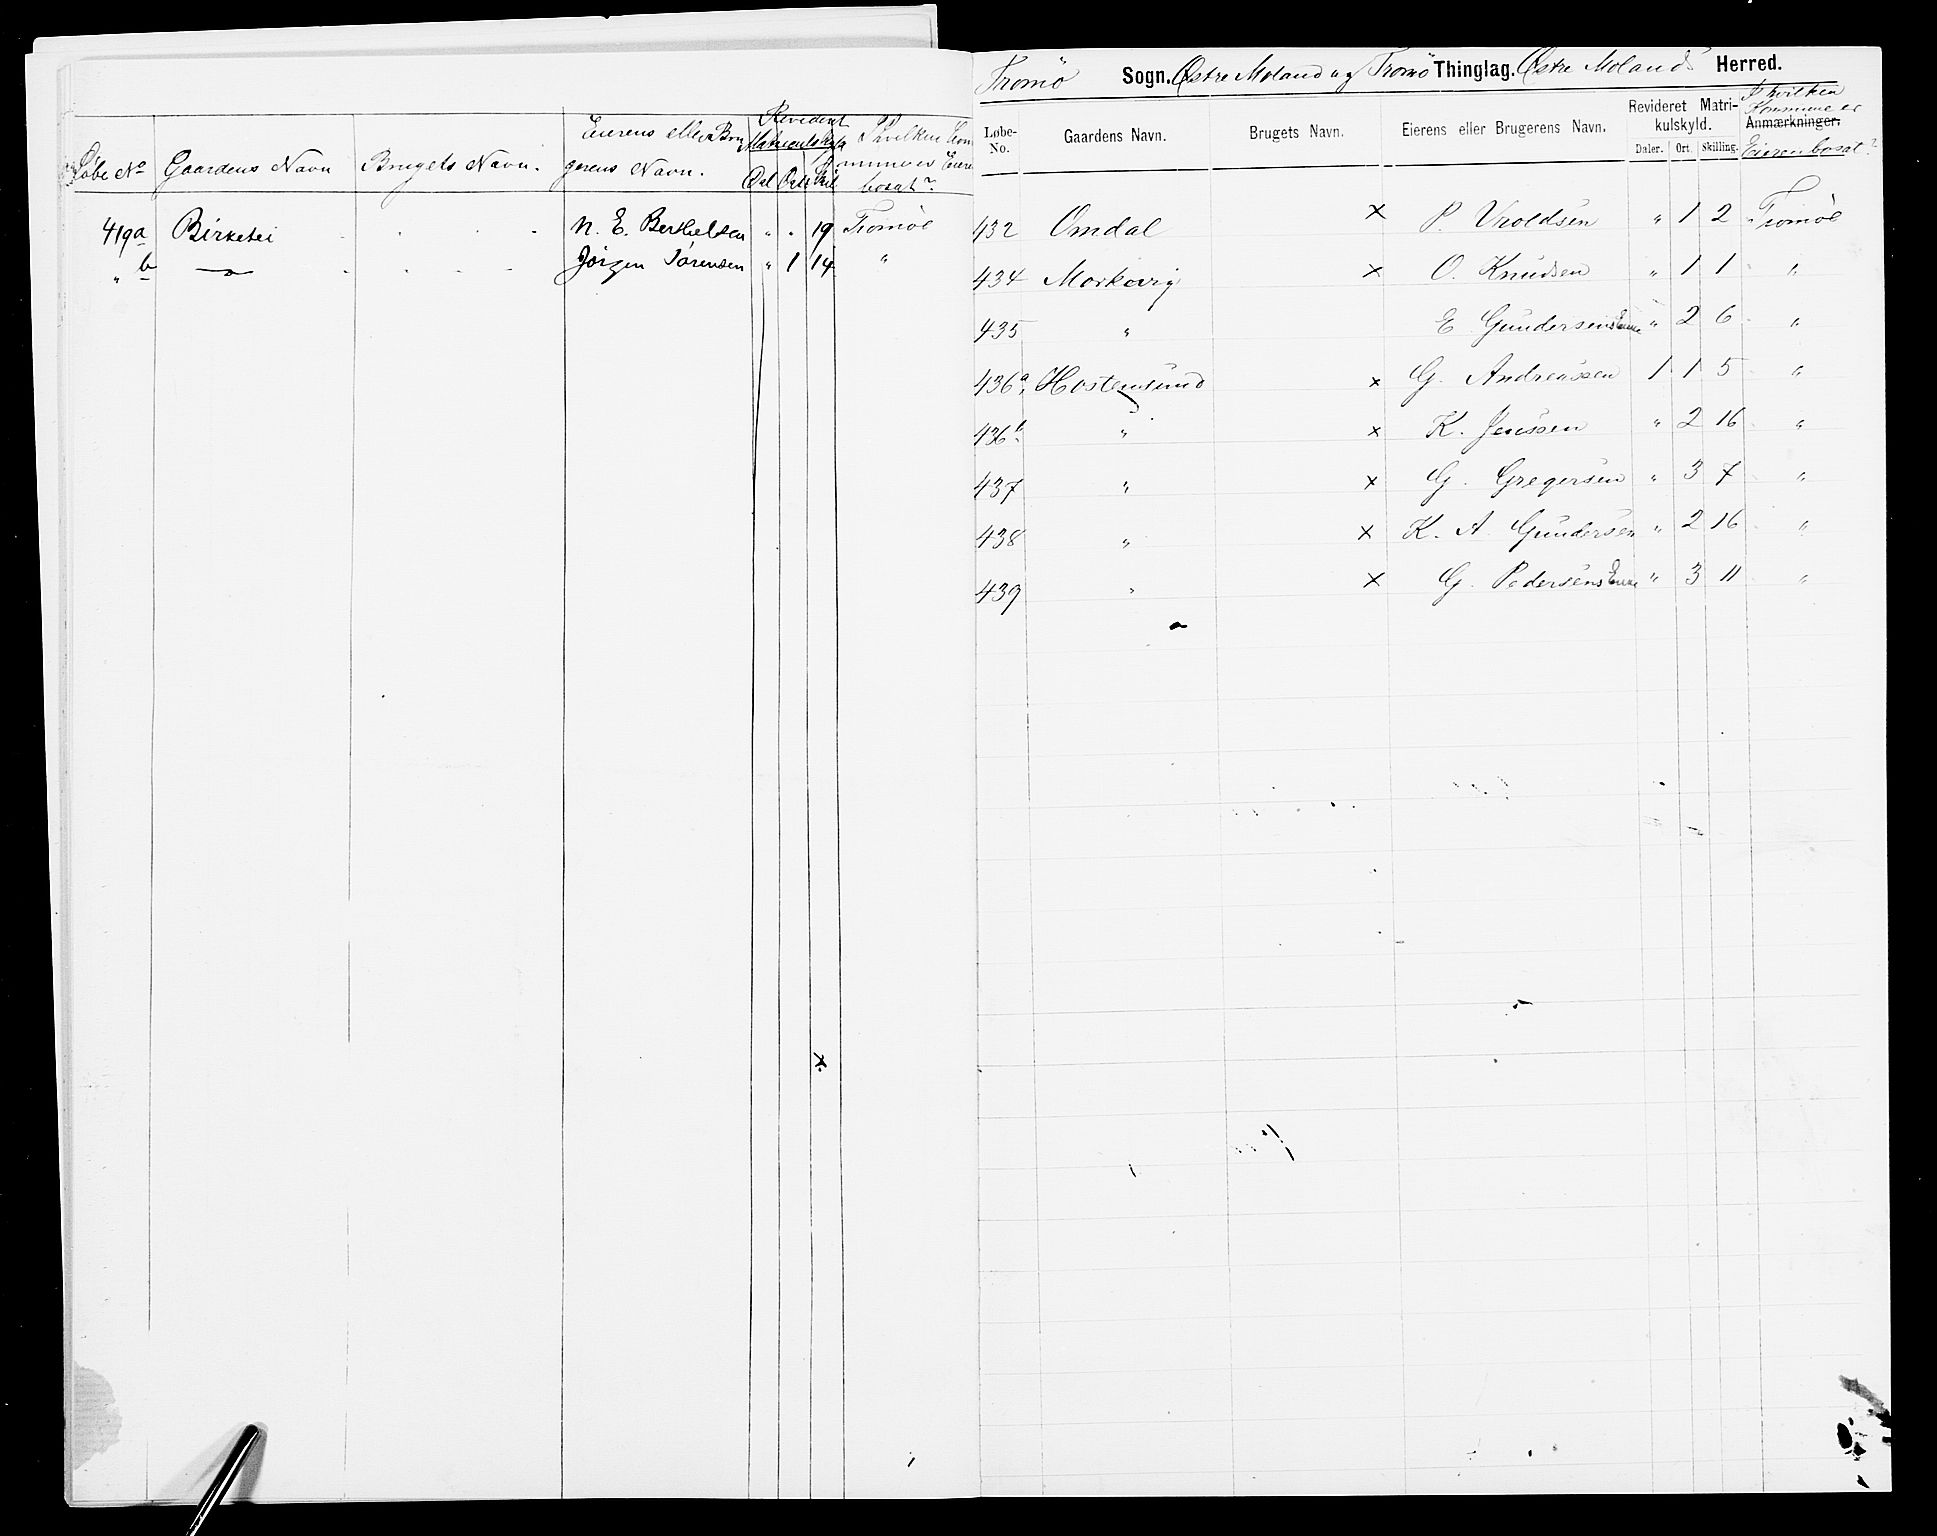 Løbe No Gaardens Navn Brugets Navn. Eierens eller Bru gerens Navn. Revideret Matriculskyld Dal Ort Skil I hvilken Kommune er Eieren bosat?
419a Birketei N. E. Berthelsen " " 19 Tromøe
" b — Jörgen Sörensen " 1 14 "
Tromö Sogn. Østre Moland og Tromö Thinglag. Østre Molands Herred.
Løbe-No. Gaardens Navn. Brugets Navn. Eierens eller Brugerens Navn. Revideret Matrikulskyld. Daler. Ort. Skilling. Anmærkninger. I hvilken Kommune er Eieren bosat?
432 Omdal x P. Vroldsen " 1 2 Tromöe
434 Morkevig x O. Knudsen " 1 1 "
435 " E Gundersens Enke " 2 6 "
436a. Hostensund x G. Andreassen 1 1 5 "
436b. " x K. Jenssen " 2 16 "
437 " x G. Gregersen " 3 7 "
438 " x K. A. Gundersen " 2 16 "
439 " x G. Pedersens Enke " 3 11 "
x